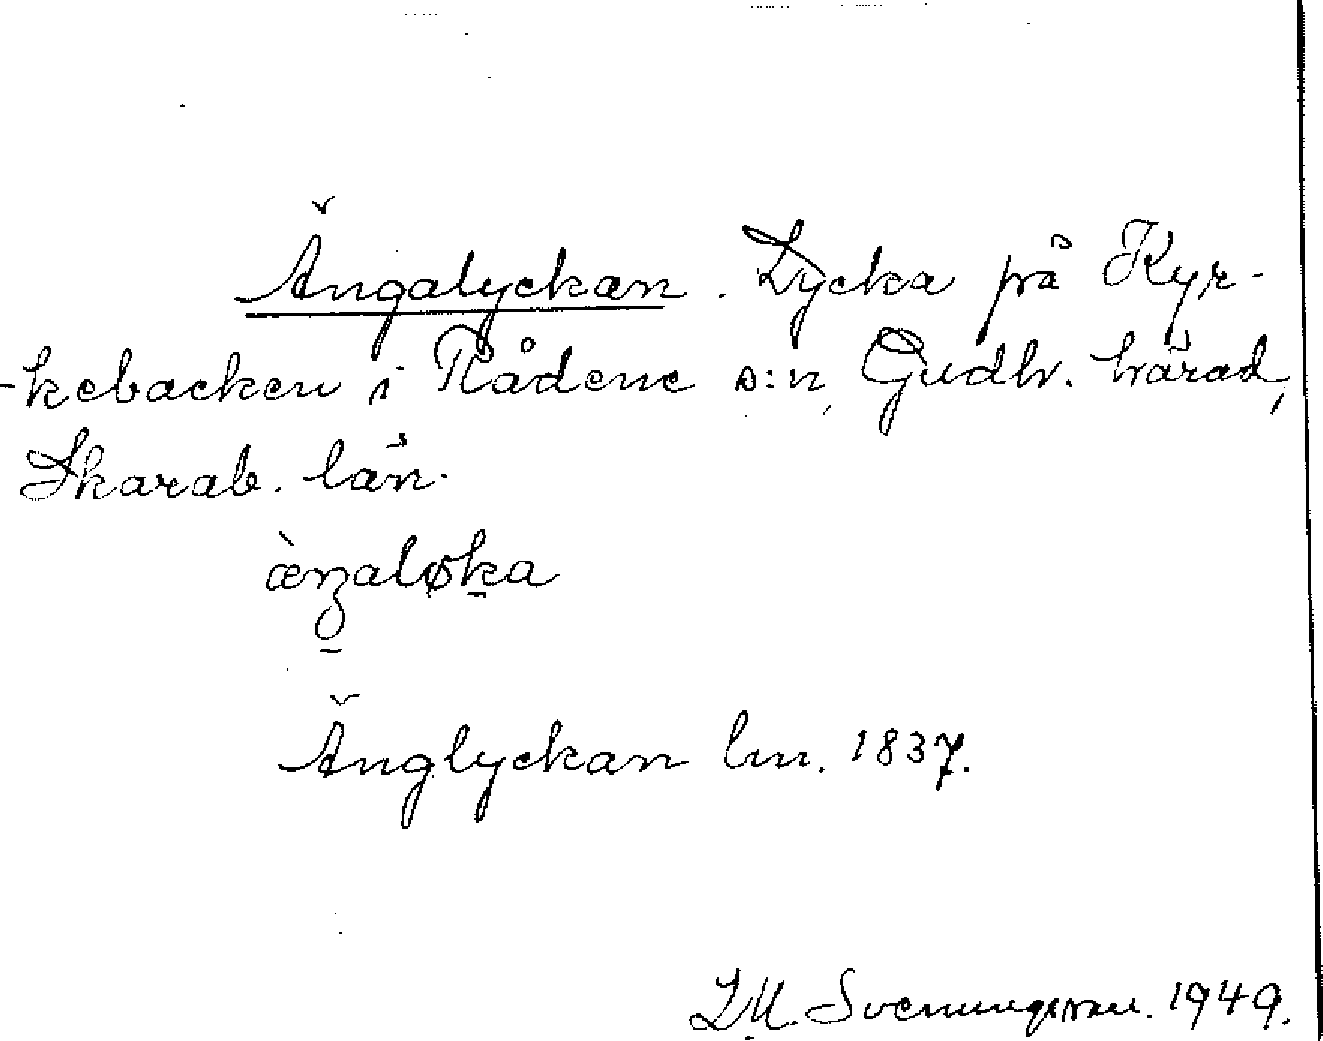 Ängalyckan. Lycka på Kyr-
-kebacken i Rådene s:n, Gudh. härad,
Skarab. län.
æ̀ŋaløka
Änglyckan lm. 1837.
D.M. Svenungsson. 1949.